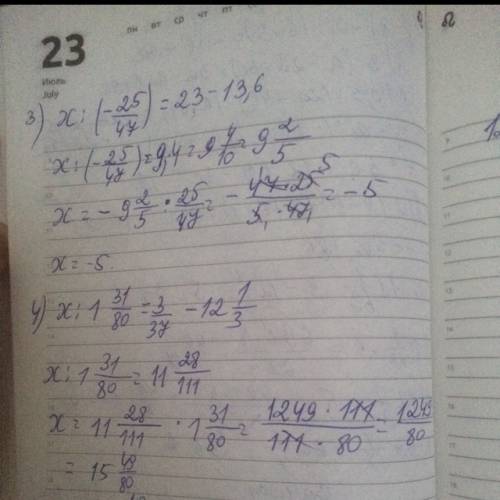 пн вт ср чт пт
23
Июль
July
3) x : (-25/47) = 23 - 13,6
x : (-25/47) = 9,4 = 9 4/10 = 9 2/5
x = -9 2/5 : 25/47 = - 47·25/5·47 = -5
x = -5.
4) x : 1 31/80 = 3/37 - 12 1/3
x : 1 31/80 = 11 28/111
x = 11 28/111 · 1 31/80 = 1249·111/111·80 = 1249/80
= 15 49/80